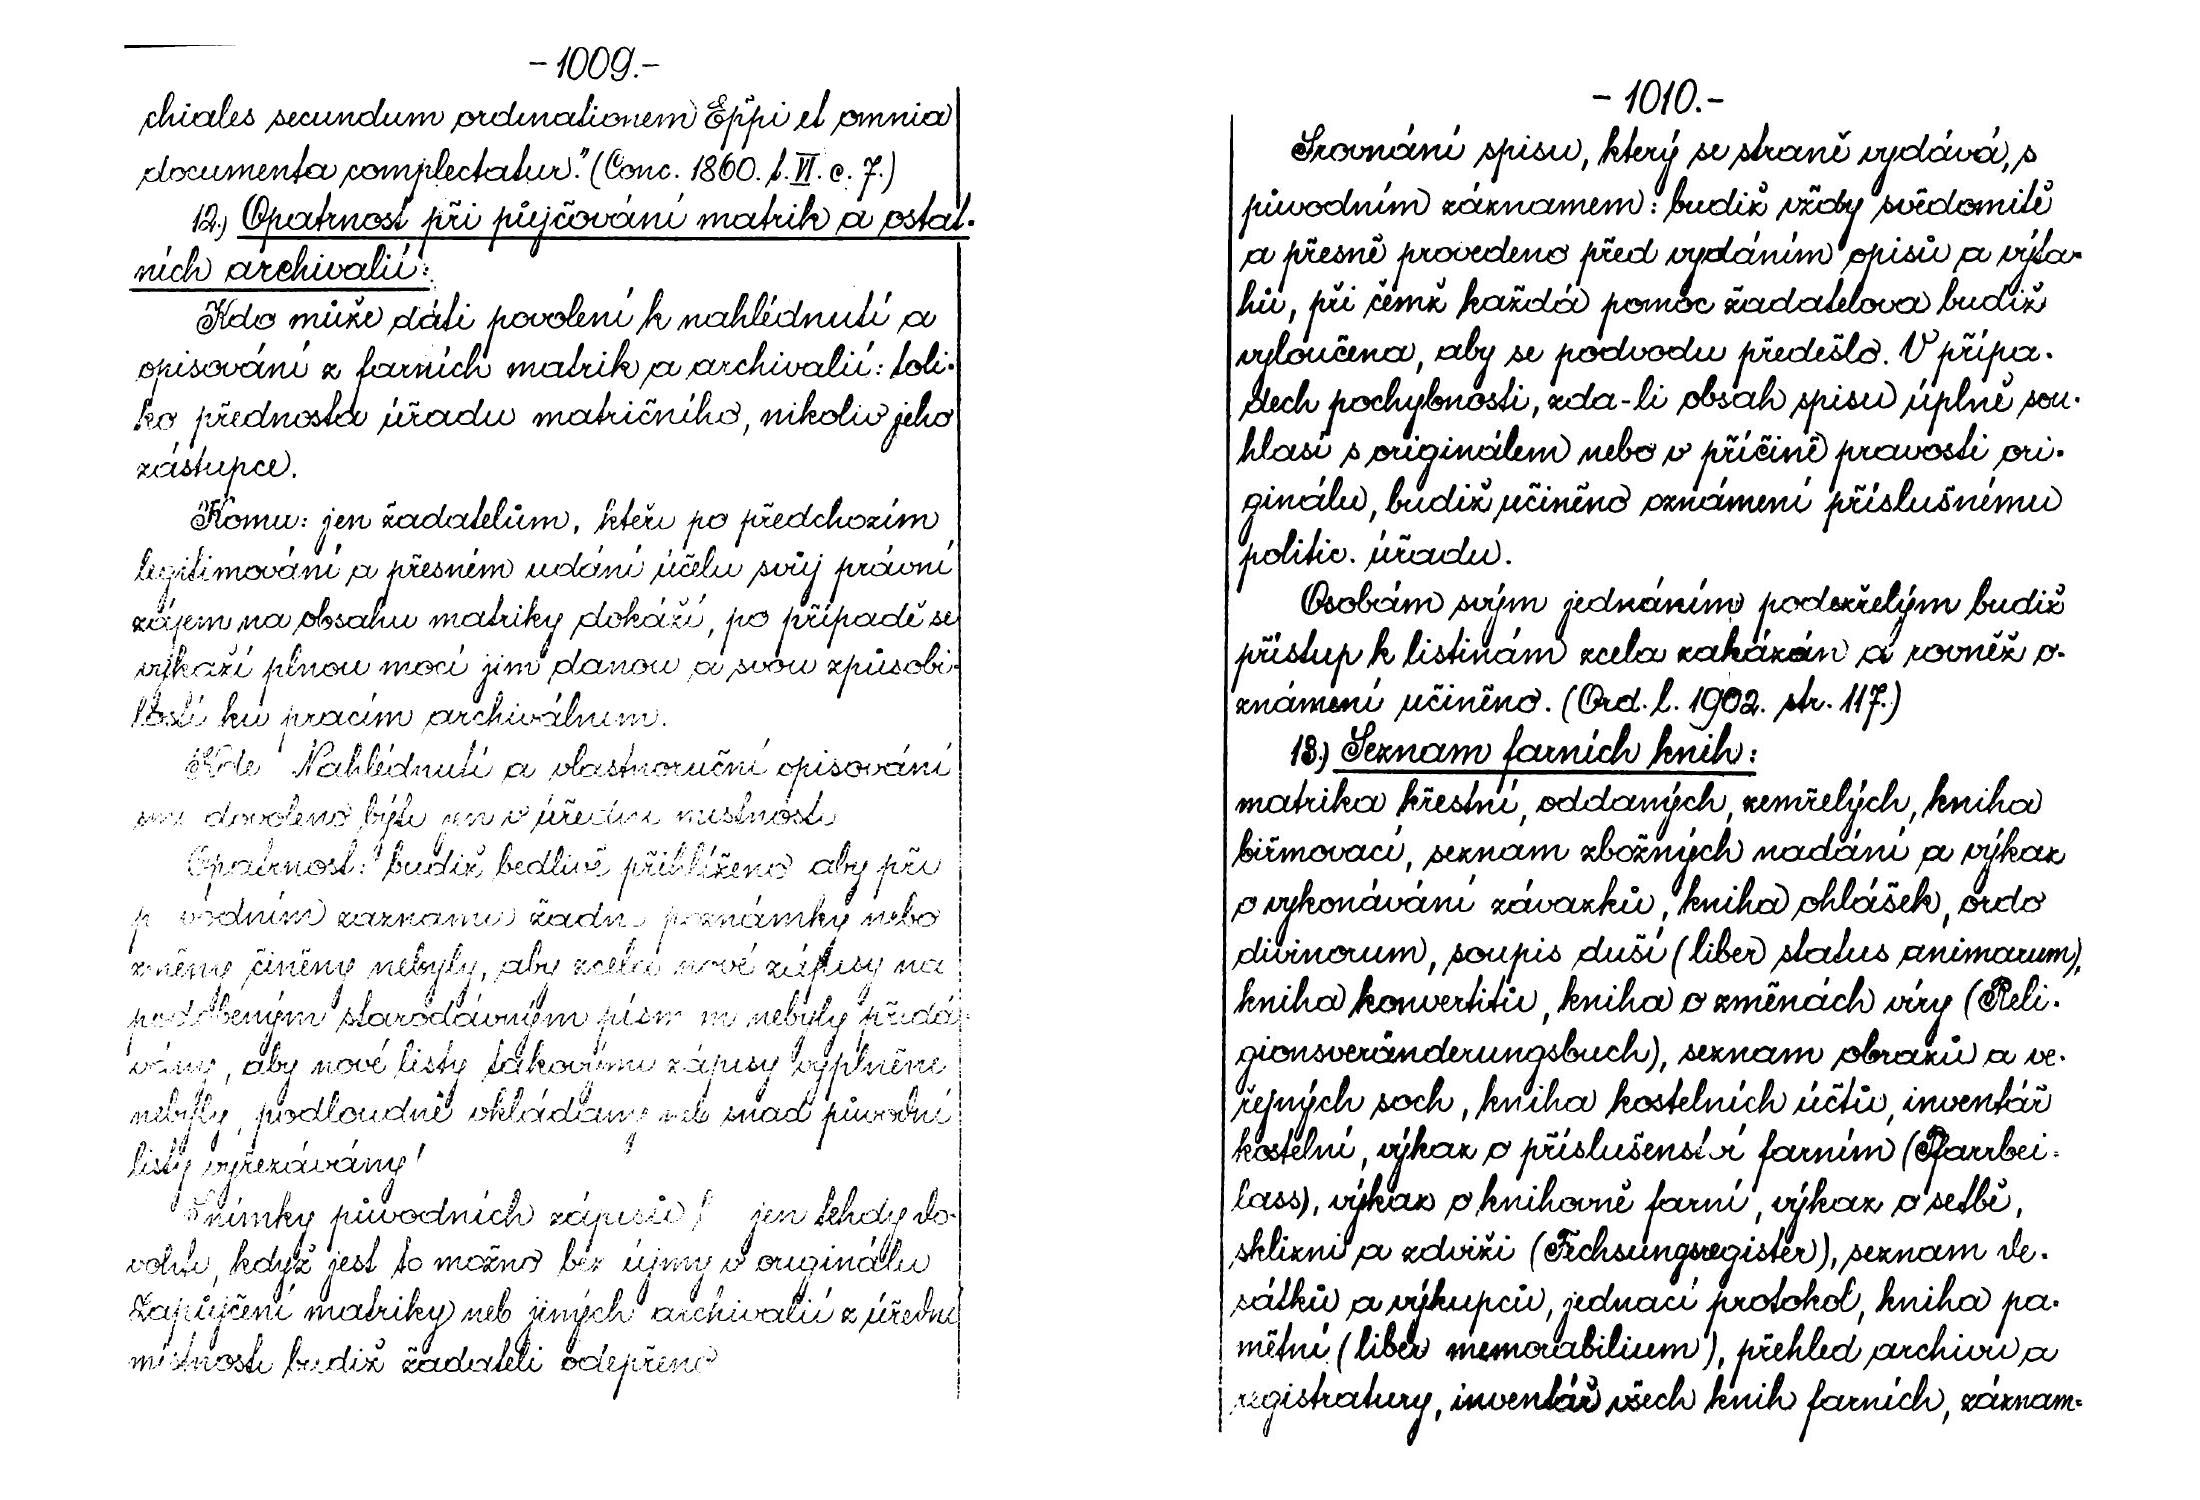 -1009.-
chiales secundum ordinationem Eppi et omnia
documenta complectatur." (Conc. 1860. t. VI. c. 7.)
12.) Opatrnost při půjčování matrik a ostat-
ních archivalií:
Kdo může dáti povolení k nahlédnutí a
opisování z farních matrik a archivalií: toli-
ko přednosta úřadu matričního, nikoliv jeho
zástupce.
Komu: jen žadatelům, kteří po předchozím
legitimování a přesném udání účelu svůj právní
zájem na obsahu matriky dokáží, po případě se
výkáží plnou mocí jim danou a svou způsobi-
lostí ku pracím archiválním.
Kde Nahlédnutí a vlastnoruční opisování
smí dovoleno býti jen v úřední místnosti
Opatrnost: budiž bedlivě přihlíženo aby při
původním záznamu žádné poznámky nebo
změny činěny nebyly, aby zcela nové zápisy na
podobeným starodávným písmem nebyly přidá-
vány, aby nové listy takovými zápisy vyplněné
nebyly podloudně vkládány neb snad původní
listy vyřezávány!
Snímky původních zápisů jen tehdy do-
volte, když jest to možno bez újmy v originálu
Zapůjčení matriky neb jiných archivalií z úřední
místnosti budiž žadateli odepřeno
-1010.-
Srovnání spisu, který se straně vydává, s
původním záznamem: budiž vždy svědomitě
a přesně provedeno před vydáním opisů a výta-
hů, při čemž každá pomoc žadatelova budiž
vyloučena, aby se podvodu předešlo. V přípa-
dech pochybnosti, zda-li obsah spisu úplně sou-
hlasí s originálem nebo v příčině pravosti ori-
ginálu, budiž učiněno oznámení příslušnému
politic. úřadu.
Osobám svým jednáním podezřelým budiž
přístup k listinám zcela zakázán a rovněž o-
známení učiněno. (Ord. l. 1902. str. 117.)
13.) Seznam farních knih:
matrika křestní, oddaných, zemřelých, kniha
biřmovací, seznam zbožných nadání a výkaz
o vykonávání závazků, kniha ohlášek, ordo
divinorum, soupis duší (liber status animarum),
kniha konvertitů, kniha o změnách víry (Reli-
gionsveränderungsbuch), seznam obrazů a ve-
řejných soch, kniha kostelních účtů, inventář
kostelní, výkaz o příslušenství farním (Pfarrbei-
lass), výkaz o knihovně farní, výkaz o setbě,
sklizni a zdviži (Fechsungsregister), seznam de-
sátků a výkupců, jednací protokol, kniha pa-
mětní (liber memorabilium), přehled archivu a
registratury, inventář všech knih farních, záznam-